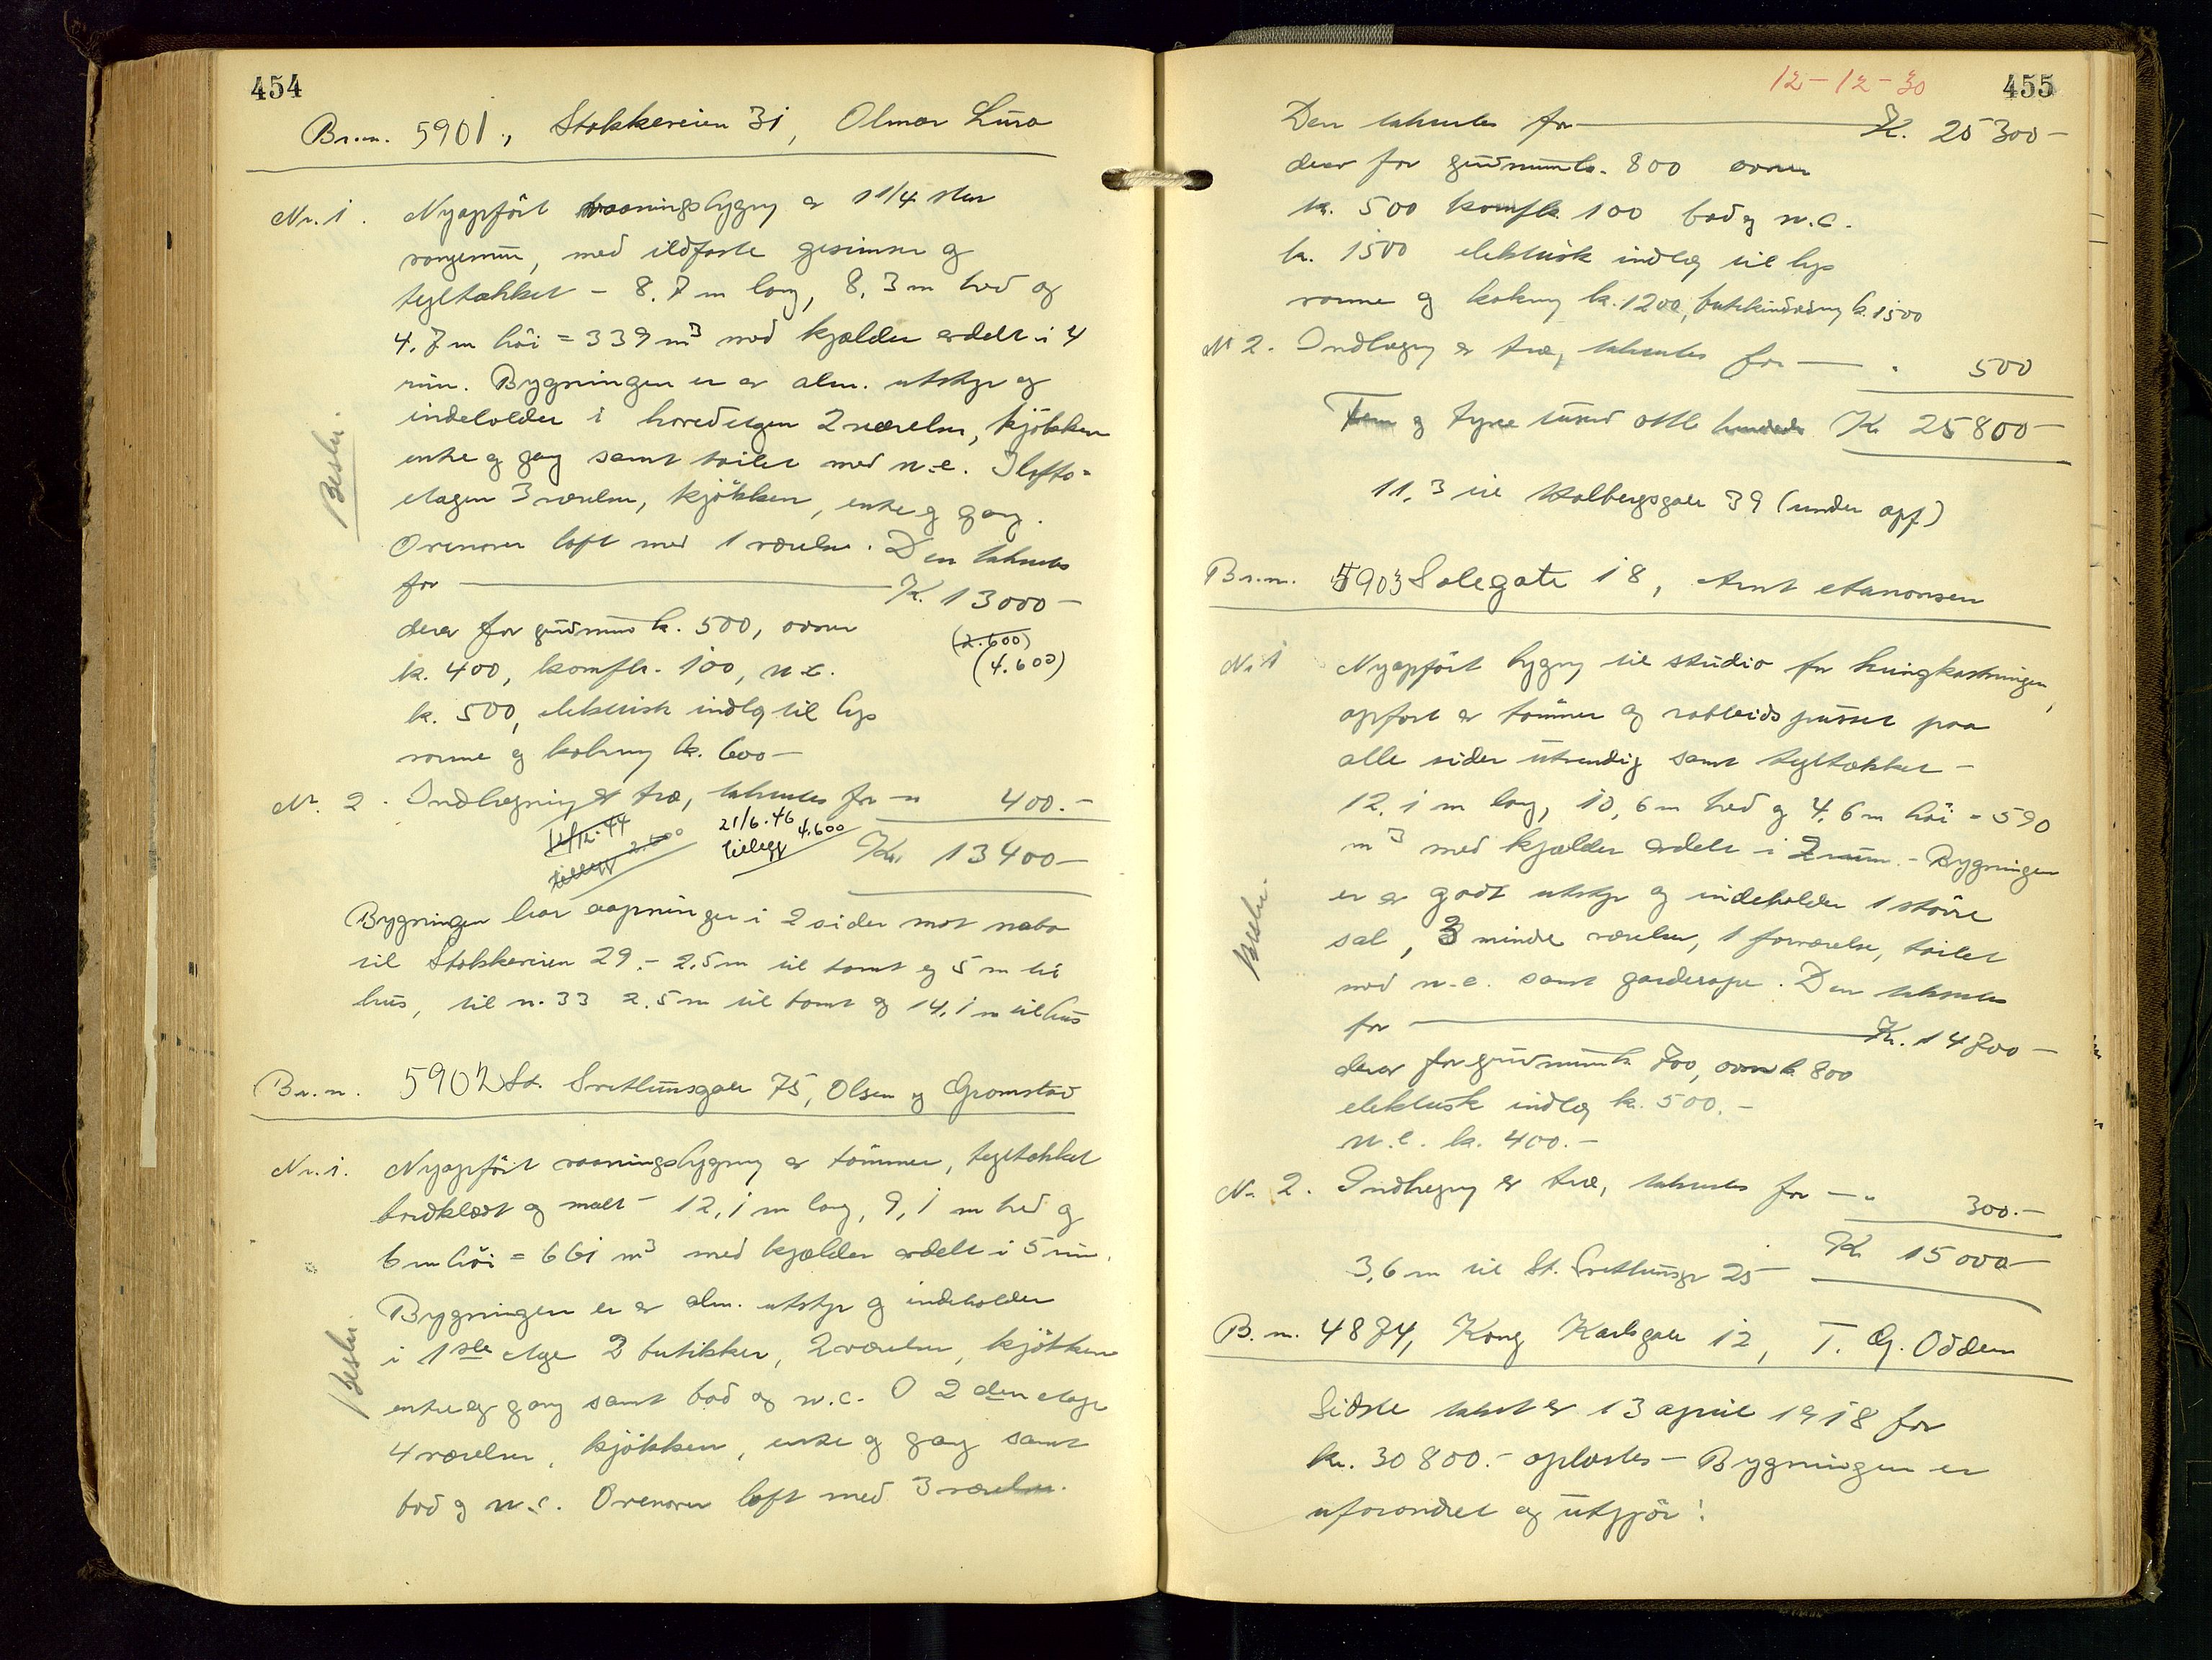 454
Br.nr. 5901, Stokkaveien 31, Olmar Lura
Nr. 1. Nyopført vaaningsbygng av 1 1/4 sten
vangemur, med ildfaste gesimser og
tegltækket - 8.7 m lang, 8,3 m bred og
4.7 m høi = 339 m³ med kjælder avdelt i 4
rum. Bygningen er av alm. utstyr og
indeholder i hovedetagen 2 værelser, kjøkken
entre og gang samt toilet med w.c. I lofts-
etagen 3 værelser, kjøkken, entre og gang.
Ovenover loft med 1 værelse. Den takseres
for K. 13000 -
derav for grundmur k. 500, ovner (2.600)
k. 400, komfyr. 100, w.c. (4.600)
k. 500, elektrisk indlæg til lys
varme og kokning k. 600 -
Beskr.
Nr. 2. Indhegning av træ, takseres for - " 400.-
tillegg 2.600 21/6.46 tillegg 4.600 Kr. 13400 -
Bygningen har aapninger i 2 sider mot nabo
til Stokkaveien 29 - 2,5 m til tomt og 5 m til
hus, til nr. 33 2.5 m til tomt og 14,1 m til hus
Br.nr. 5902 St. Svithunsgate 75, Olsen og Gromstad
Nr. 1. Nyopført vaaningsbygng av tømmer, tegltækket
bordklædt og malt - 12,1 m lang, 9,1 m bred og
6 m høi = 661 m³ med kjælder avdelt i 5 rum.
Bygningen er av alm. utstyr og indeholder
i 1ste etage 2 butikker, 2 værelser, kjøkken
entre og gang samt bad og w.c. I 2den etage
4 værelser, kjøkken, entre og gang samt
bad og w.c. Ovenover loft med 3 værelser.
Beskr.
12-12-30 455
Den takseres for K. 25300 -
derav for grundmur k. 800 ovner
k. 500 komfyr 100 bad og w.c.
k. 1500 elektrisk indlæg til lys
varme og kokning k. 1200, butikindredning k. 1500
Nr 2. Indhegng av træ, takseres for - " 500
Fem og tyve tusind otte hundrede K 25800 -
11,3 til Holbergsgate 39 (under opf.)
Br.nr. 5903 Solegate 18, Arnt Aanonsen
Nr. 1 Nyopført bygng til studio for kringkastningen,
opført av tømmer og rabbitzpusset paa
alle sider utvendig samt tegltækket -
12,1 m lang, 10,6 m bred og 4,6 m høi = 590
m³ med kjælder avdelt i 2 rum. - Bygningen
er av godt utstyr og indeholder 1 større
sal, 3 mindre værelser, 1 forværelse, toilet
med w.c. samt garderobe. Den takseres
for K. 14700 -
derav for grundmur k. 700, ovner k. 800
elektrisk indlæg k. 500.-
w.c. k. 400.-
Beskr.
Nr. 2. Indhegng av træ, takseres for - " 300.-
K 15000 -
3,6 m til St. Svithunsgt 25
B.nr. 4874, Kong Karlsgate 12, T. G. Oddem
Sidste takst av 13 april 1918 for
kr. 30800.- oplæstes - Bygningen er
uforandret og utgjør: